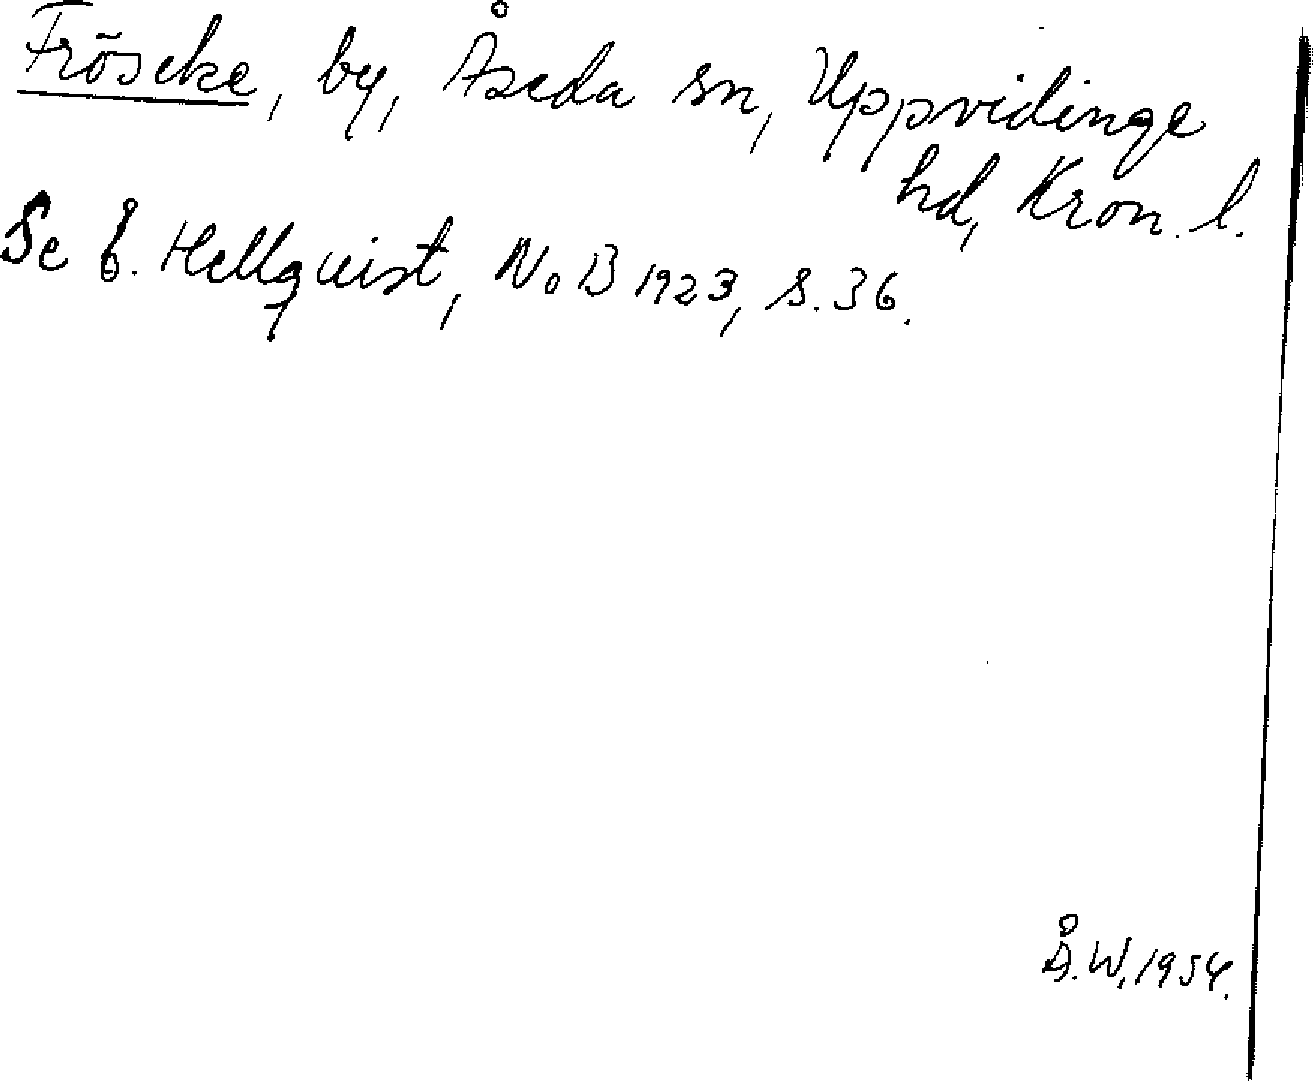 Fröseke, by, Åseda sn, Uppvidinge
hd, Kron. l.
Se E. Hellquist, NoB 1923, s. 36.
Å.W. 1954.